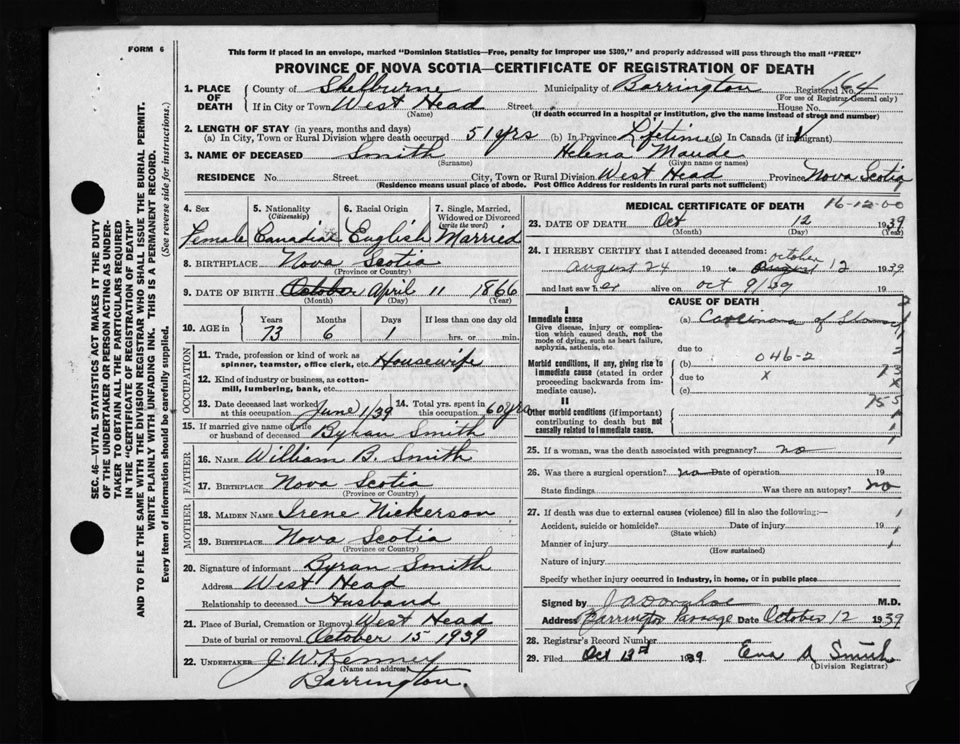 FORM 6
This form if placed in an envelope, marked "Dominion Statistics—Free, penalty for improper use $300," and properly addressed will pass through the mail "FREE"
PROVINCE OF NOVA SCOTIA—CERTIFICATE OF REGISTRATION OF DEATH
SEC. 46—VITAL STATISTICS ACT MAKES IT THE DUTY
OF THE UNDERTAKER OR PERSON ACTING AS UNDER-
TAKER TO OBTAIN ALL THE PARTICULARS REQUIRED
IN THE "CERTIFICATE OF REGISTRATION OF DEATH"
AND TO FILE THE SAME WITH THE DIVISION REGISTRAR WHO SHALL ISSUE THE BURIAL PERMIT.
WRITE PLAINLY WITH UNFADING INK. THIS IS A PERMANENT RECORD.
Every item of information should be carefully supplied. (See reverse side for instructions.)
1. PLACE OF DEATH County of Shelburne Municipality of Barrington Registered No. 164
(For use of Registrar-General only)
If in City or Town West Head Street House No.
(Name) (If death occurred in a hospital or institution, give the name instead of street and number)
2. LENGTH OF STAY (in years, months and days)
(a) In City, Town or Rural Division where death occurred 51 yrs (b) In Province Lifetime (c) In Canada (if immigrant)
3. NAME OF DECEASED Smith Helena Maude
(Surname) (Given name or names)
RESIDENCE No. Street City, Town or Rural Division West Head Province Nova Scotia
(Residence means usual place of abode. Post Office Address for residents in rural parts not sufficient)
4. Sex 5. Nationality (Citizenship) 6. Racial Origin 7. Single, Married, Widowed or Divorced (write the word)
Female Canadian English Married
8. BIRTHPLACE Nova Scotia
(Province or Country)
9. DATE OF BIRTH October April 11 1866
(Month) (Day) (Year)
10. AGE in Years Months Days If less than one day old
73 6 1 hrs. or min.
OCCUPATION
11. Trade, profession or kind of work as spinner, teamster, office clerk, etc. Housewife
12. Kind of industry or business, as cotton-mill, lumbering, bank, etc.
13. Date deceased last worked at this occupation June 1/39 14. Total yrs. spent in this occupation 60 yrs
15. If married give name of wife or husband of deceased Byran Smith
FATHER
16. NAME William B. Smith
17. BIRTHPLACE Nova Scotia
(Province or Country)
MOTHER
18. MAIDEN NAME Irene Nickerson
19. BIRTHPLACE Nova Scotia
(Province or Country)
20. Signature of informant Byran Smith
Address West Head
Relationship to deceased Husband
21. Place of Burial, Cremation or Removal West Head
Date of burial or removal October 15 1939
22. UNDERTAKER J. W. Kenney
(Name and address)
Barrington
MEDICAL CERTIFICATE OF DEATH 16-12-00
23. DATE OF DEATH Oct 12 1939
(Month) (Day) (Year)
24. I HEREBY CERTIFY that I attended deceased from:
October
August 24 19 to August 12 1939
and last saw her alive on Oct 9/39 19
CAUSE OF DEATH
I
Immediate cause
Give disease, injury or complication which caused death, not the mode of dying, such as heart failure, asphyxia, asthenia, etc.
(a) Carcinoma of Stomach
due to
Morbid conditions, if any, giving rise to immediate cause (stated in order proceeding backwards from immediate cause).
(b) 046-2
due to x
(c)
II
Other morbid conditions (if important) contributing to death but not causally related to immediate cause.
25. If a woman, was the death associated with pregnancy? no
26. Was there a surgical operation? no Date of operation 19
State findings Was there an autopsy? no
27. If death was due to external causes (violence) fill in also the following:—
Accident, suicide or homicide? Date of injury 19
(State which)
Manner of injury
(How sustained)
Nature of injury
Specify whether injury occurred in industry, in home, or in public place
Signed by M.D.
Address Barrington Passage Date October 12 1939
28. Registrar's Record Number
29. Filed Oct 13th 1939 Eva A Smith
(Division Registrar)